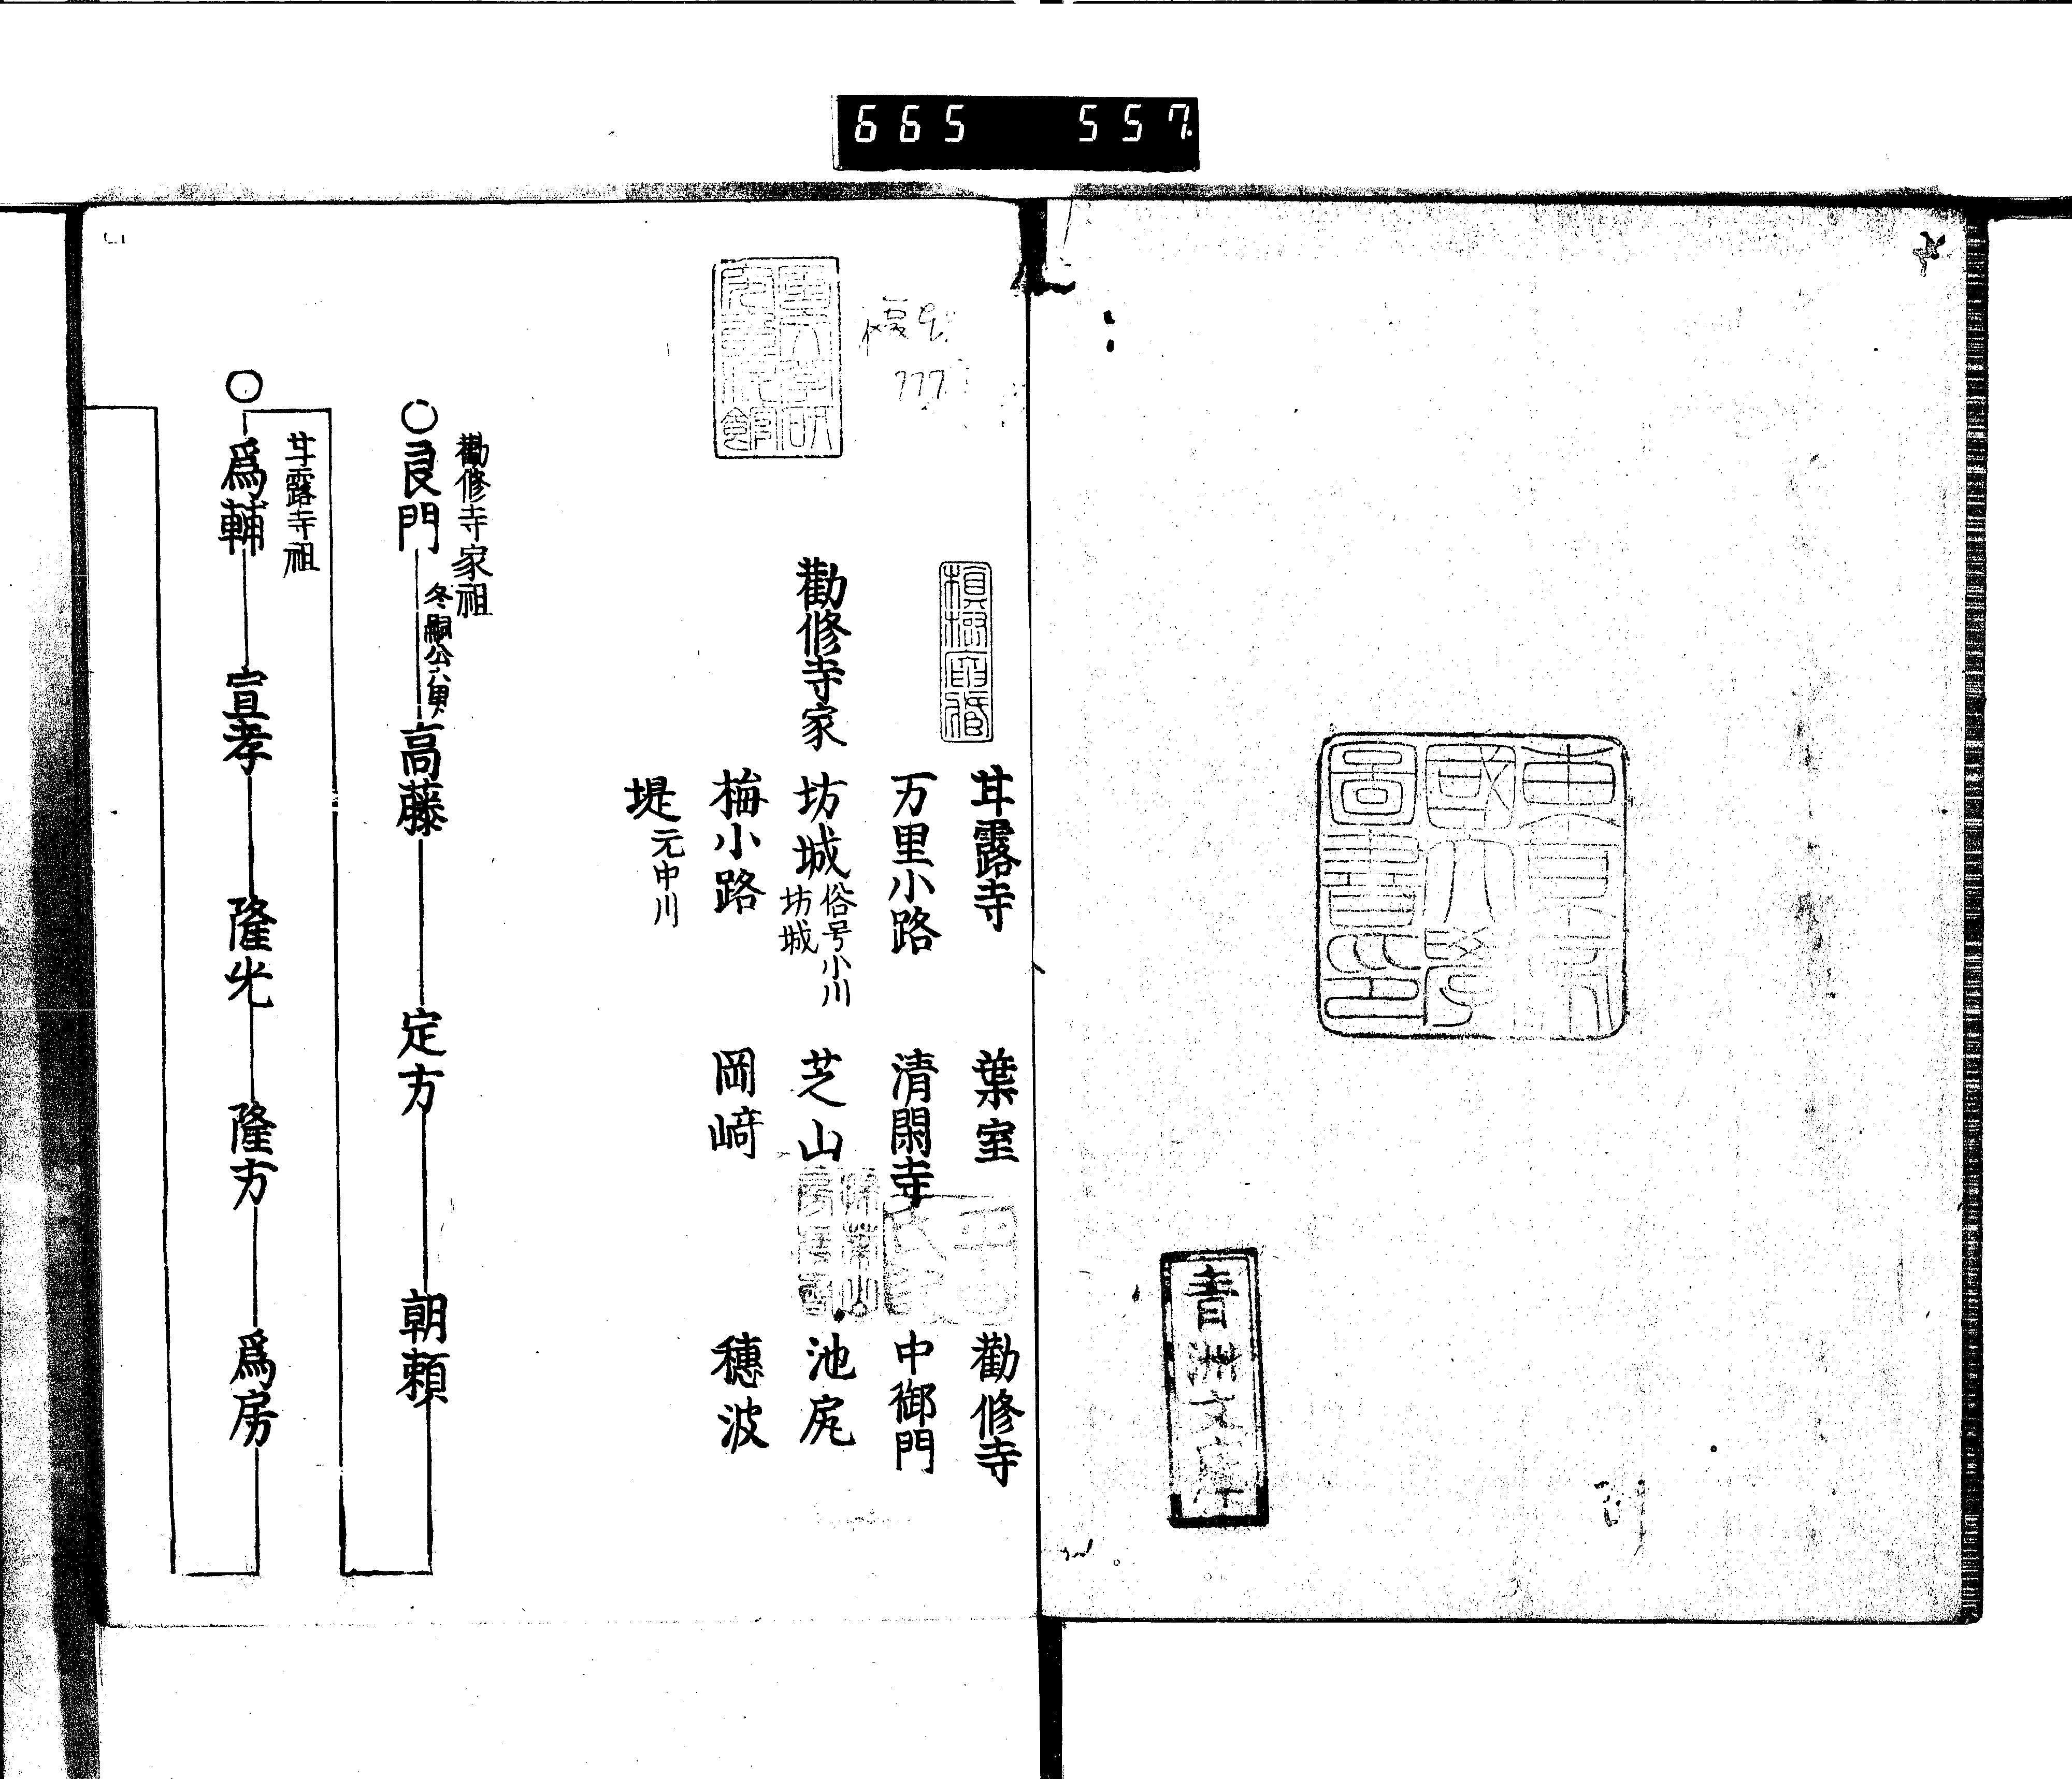 665 557
東京帝
國大學
圖書印
青洲文庫
777
甘露寺 葉室 勸修寺
万里小路 清閑寺 中御門
勸修寺家
坊城 俗号小川坊城 芝山 池尻
梅小路 岡﨑 穗波
堤 元中川
勸修寺家祖
○良門 冬嗣公六男 高藤 定方 朝頼
甘露寺祖
○爲輔 宣孝 隆光 隆方 爲房